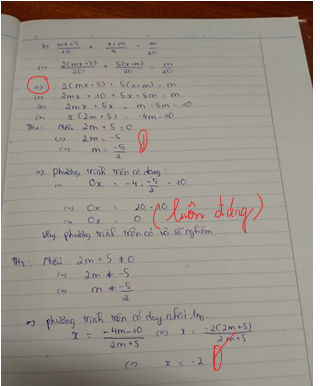 b) mx+5/10 + x+m/4 = m/20
(=) 2(mx+5)/20 + 5(x+m)/20 = m/20
(=) 2(mx+5) + 5(x+m) = m
(=) 2mx + 10 + 5x + 5m = m
(=) 2mx + 5x = m - 5m - 10
(=) x(2m+5) = -4m - 10
TH1: Nếu 2m + 5 = 0
(=) 2m = -5
(=) m = -5/2
=) phương trình trên có dạng:
(=) 0x = -4 . -5/2 - 10
(=) 0x = 10 - 10
(=) 0x = 0 (luôn đúng)
Vậy phương trình trên có vô số nghiệm
TH2: Nếu 2m + 5 ≠ 0
(=) 2m ≠ -5
(=) m ≠ -5/2
=) phương trình trên có duy nhất 1no
x = -4m-10/2m+5 (=) x = -2(2m+5)/2m+5
(=) x = -2